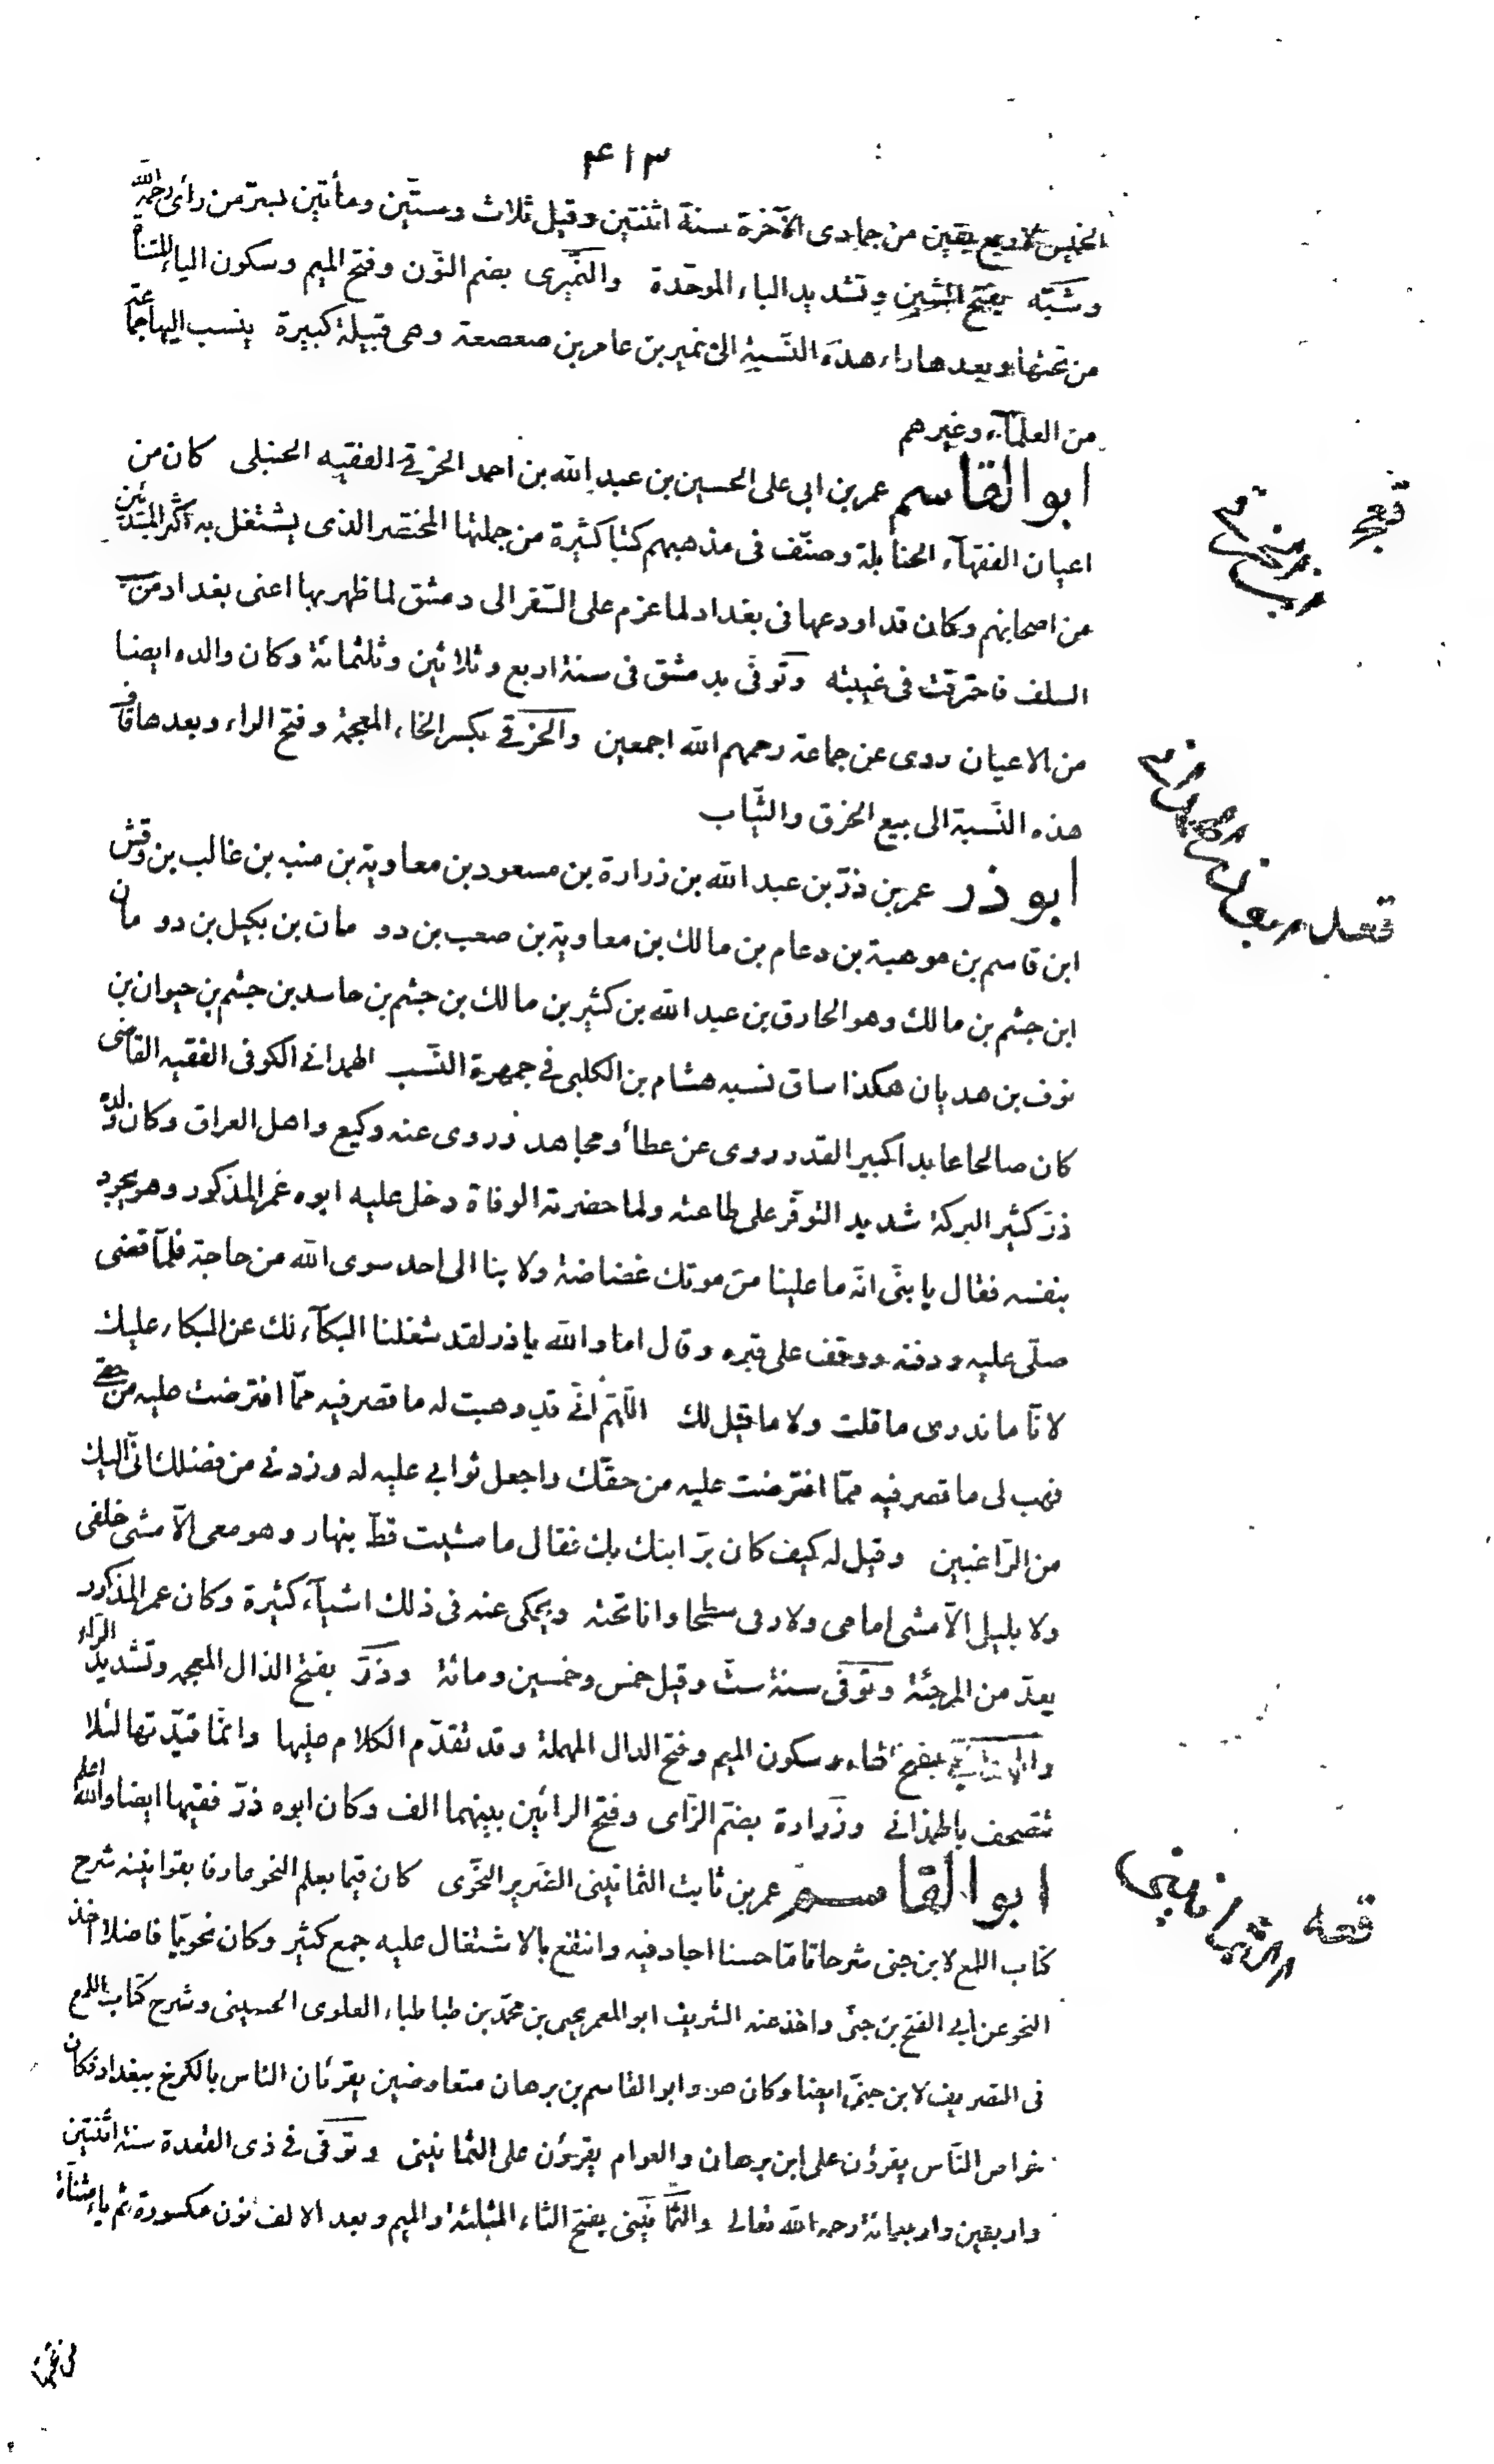 ۴۱۳
الخميس لاربع بقين من جمادى الآخرة سنة اثنتين وقيل ثلاث وستّين ومأتين بسرّ من رأى رحمه الله
وشبّه بفتح الشين وتشديد الباء الموحّدة والنّميرى بضم النّون وفتح الميم وسكون الياء المثناة
من تحتها وبعدها راء هذه النّسبة الى نمير بن عامر بن صعصعة وهى قبيلة كبيرة ينسب اليها جماعة
من العلمآء وغيرهم
ابو القاسم عمر بن ابى على الحسين بن عبد الله بن احمد الخرقے الفقيه الحنبلى كان من
اعيان الفقهآء الحنابلة وصنّف فى مذهبهم كتبا كثيرة من جملتها المختصر الذى يشتغل به اكثر المبتدئين
من اصحابهم وكان قد اودعها فى بغداد لما عزم على السّفر الى دمشق لما ظهر بها اعنى بغداد من سبّ
السلف فاحترقت فى غيبته وتوفّى بدمشق فى سنة اربع وثلاثين وثلثمائة وكان والده ايضا
من الاعيان روى عن جماعة رحمهم الله اجمعين والخرقے بكسر الخاء المعجمة وفتح الراء وبعدها قاف
هذه النّسبة الى بيع الخرق والثّياب
ابو ذر عمر بن ذرّ بن عبد الله بن زرارة بن مسعود بن معاوية بن منبه بن غالب بن وقش
ابن قاسم بن موهبة بن دعام بن مالك بن معاوية بن صعب بن دو مان بن بكيل بن دو مان
ابن جشم بن مالك وهو الخارق بن عبد الله بن كثير بن مالك بن جشم بن حاسد بن جشم بن حيوان بن
نوف بن همديان هكذا ساق نسبه هشام بن الكلبى فے جمهرة النّسب الهمدانے الكوفى الفقيه القاضى
كان صالحا عابدا كبير القدر روى عن عطاء ومجاهد وروى عنه وكيع واهل العراق وكان ولده
ذرّ كثير البركة شديد التوفّر على طاعته ولما حضرته الوفاة دخل عليه ابوه عمر المذكور وهو يجود
بنفسه فقال يا بنّى انّه ما علينا من موتك غضاضة ولا بنا الى احد سوى الله من حاجة فلمّا قضى
صلّى عليه ودفنه ووقف على قبره وقال اما والله يا ذر لقد شغلنا البكآء لك عن البكاء عليك
لانّا ما ندرى ما قلت ولا ما قيل لك اللّهمّ انّے قد وهبت له ما قصر فيه ممّا افترضت عليه من حقّے
فهب لى ما قصر فيه ممّا افترضت عليه من حقّك واجعل ثوابے عليه له وزدنے من فضلك انّى اليك
من الرّاغبين وقيل له كيف كان برّ ابنك بك فقال ما مشيت قطّ بنهار وهو معى الّا مشى خلفى
ولا بليل الّا مشى امامى ولا رقى سطحا وانا تحته ويحكى عنه فى ذلك اشيآء كثيرة وكان عمر المذكور
يعدّ من المرجئة وتوّفى سنة ستّ وقيل خمس وخمسين ومائة وذرّ بفتح الذال المعجمه وتشديد الرّاء
والهمدانے بفتح الهاء وسكون الميم وفتح الدال المهملة وقد تقدّم الكلام عليها وانّما قيّدتها لئلا
تتصحف بالهمذانے وزرارة بضمّ الزّاى وفتح الرائين بينهما الف وكان ابوه ذرّ فقيها ايضا والله اعلم
ابو القاسم عمر بن ثابت الثمانينى الضّرير النّحوّى كان قيّما بعلم النحو عارفا بقوانينه شرح
كتاب اللمع لابن جنى شرحا تامّا حسنا اجاد فيه وانتفع بالاشتغال عليه جمع كثير وكان نحويّا فاضلا اخذ
النحو عن ابے الفتح بن جنّى واخذ عنه الشريف ابو المعمر يحيى بن محمّد بن طباطباء العلوى الحسينى وشرح كتاب اللمع
فى التصريف لابن جنّى ايضا وكان هو وابو القاسم بن برهان متعارضين يقرئان الناس بالكرخ ببغداد فكان
خواص النّاس يقرؤن على ابن برهان والعوام يقرؤن على الثمانينى وتوّفى فے ذى القعدة سنة اثنتين
واربعين واربعمائة رحمه الله تعالى والثّمانينى بفتح الثاء المثلثة والميم وبعد الالف نون مكسورة ثم ياء مثناة